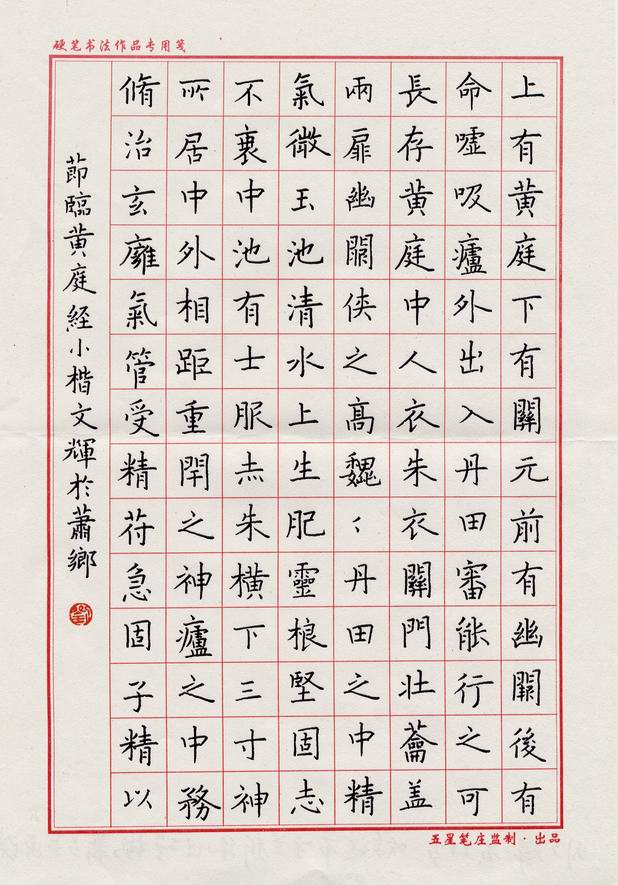 硬笔书法作品专用笺
上有黄庭下有關元前有幽闕後有
命噓吸廬外出入丹田審能行之可
長存黄庭中人衣朱衣關門壯蘥盖
兩扉幽闕侠之高魏〻丹田之中精
氣微玉池清水上生肥靈根堅固志
不衰中池有士服赤朱横下三寸神
所居中外相距重閇之神廬之中務
脩治玄廱氣管受精苻急固子精以
莭臨黄庭経小楷文輝於蕭鄉
五星笔庄监制·出品